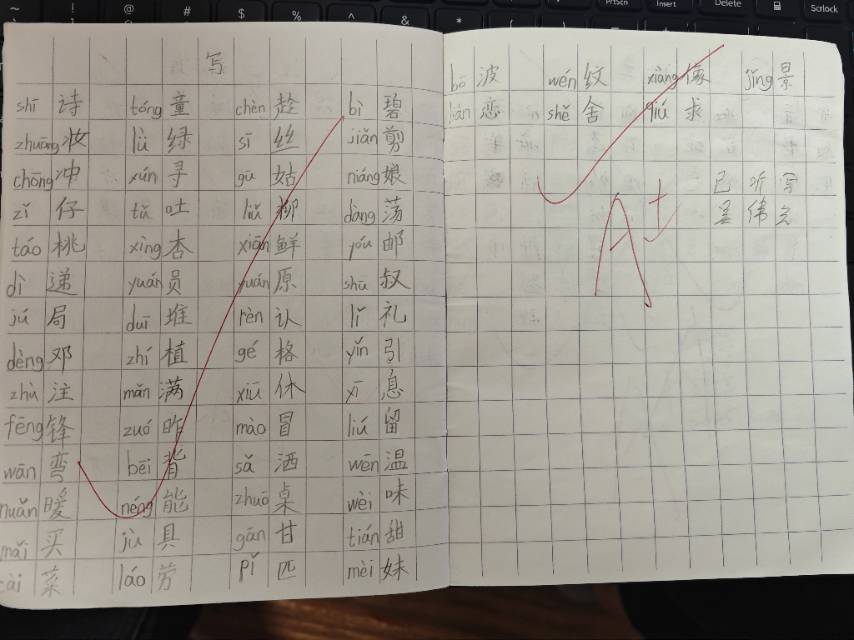 PrtScn Insert Delete Scrlock
写
shī 诗 tóng 童 chèn 趁 bì 碧
zhuāng 妆 lǜ 绿 sī 丝 jiǎn 剪
chōng 冲 xún 寻 gū 姑 niáng 娘
zǐ 仔 tǔ 吐 liǔ 柳 dàng 荡
táo 桃 xìng 杏 xiān 鲜 yóu 邮
dì 递 yuán 员 yuán 原 shū 叔
jú 局 duī 堆 rèn 认 lǐ 礼
dèng 邓 zhí 植 gé 格 yǐn 引
zhù 注 mǎn 满 xiū 休 xī 息
fēng 锋 zuó 昨 mào 冒 liú 留
wān 弯 bēi 背 sǎ 洒 wēn 温
nuǎn 暖 néng 能 zhuō 桌 wèi 味
mǎi 买 jù 具 gān 甘 tián 甜
cài 菜 láo 劳 pǐ 匹 mèi 妹
bō 波 wén 纹 xiàng 像 jǐng 景
liàn 恋 shě 舍 qiú 求
已听写
A+